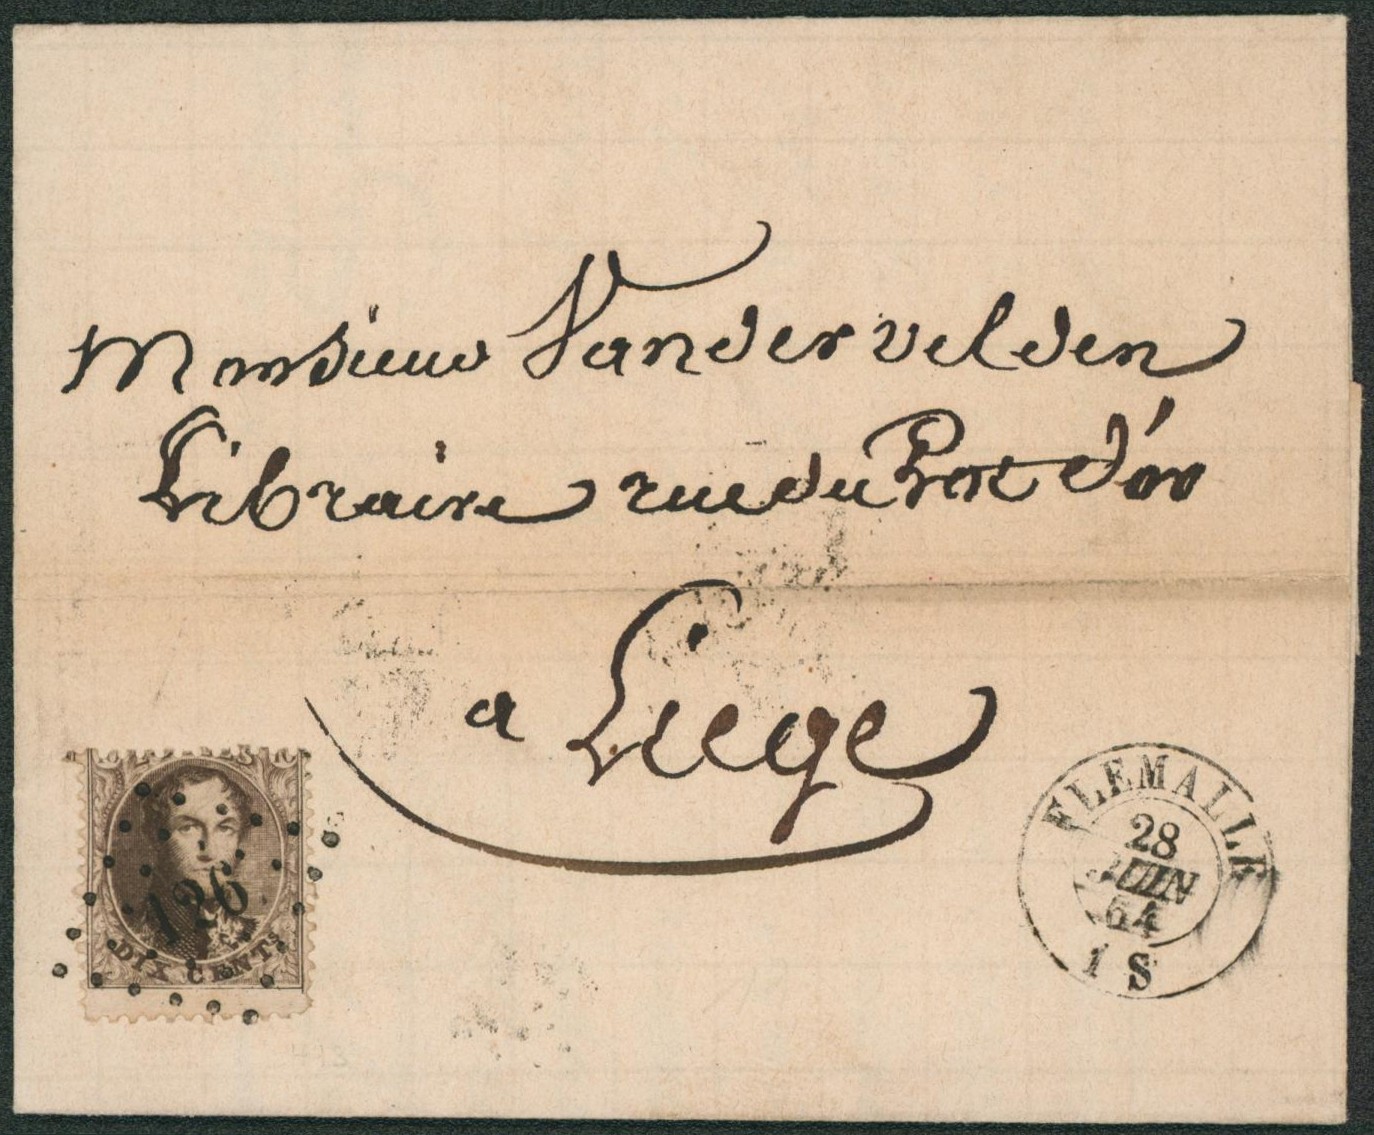 Monsieur Vandervelden
Libraire rue du Pot d'or
a Liege
126
DIX CENTS
FLEMALLE
28
JUIN
64
1 S